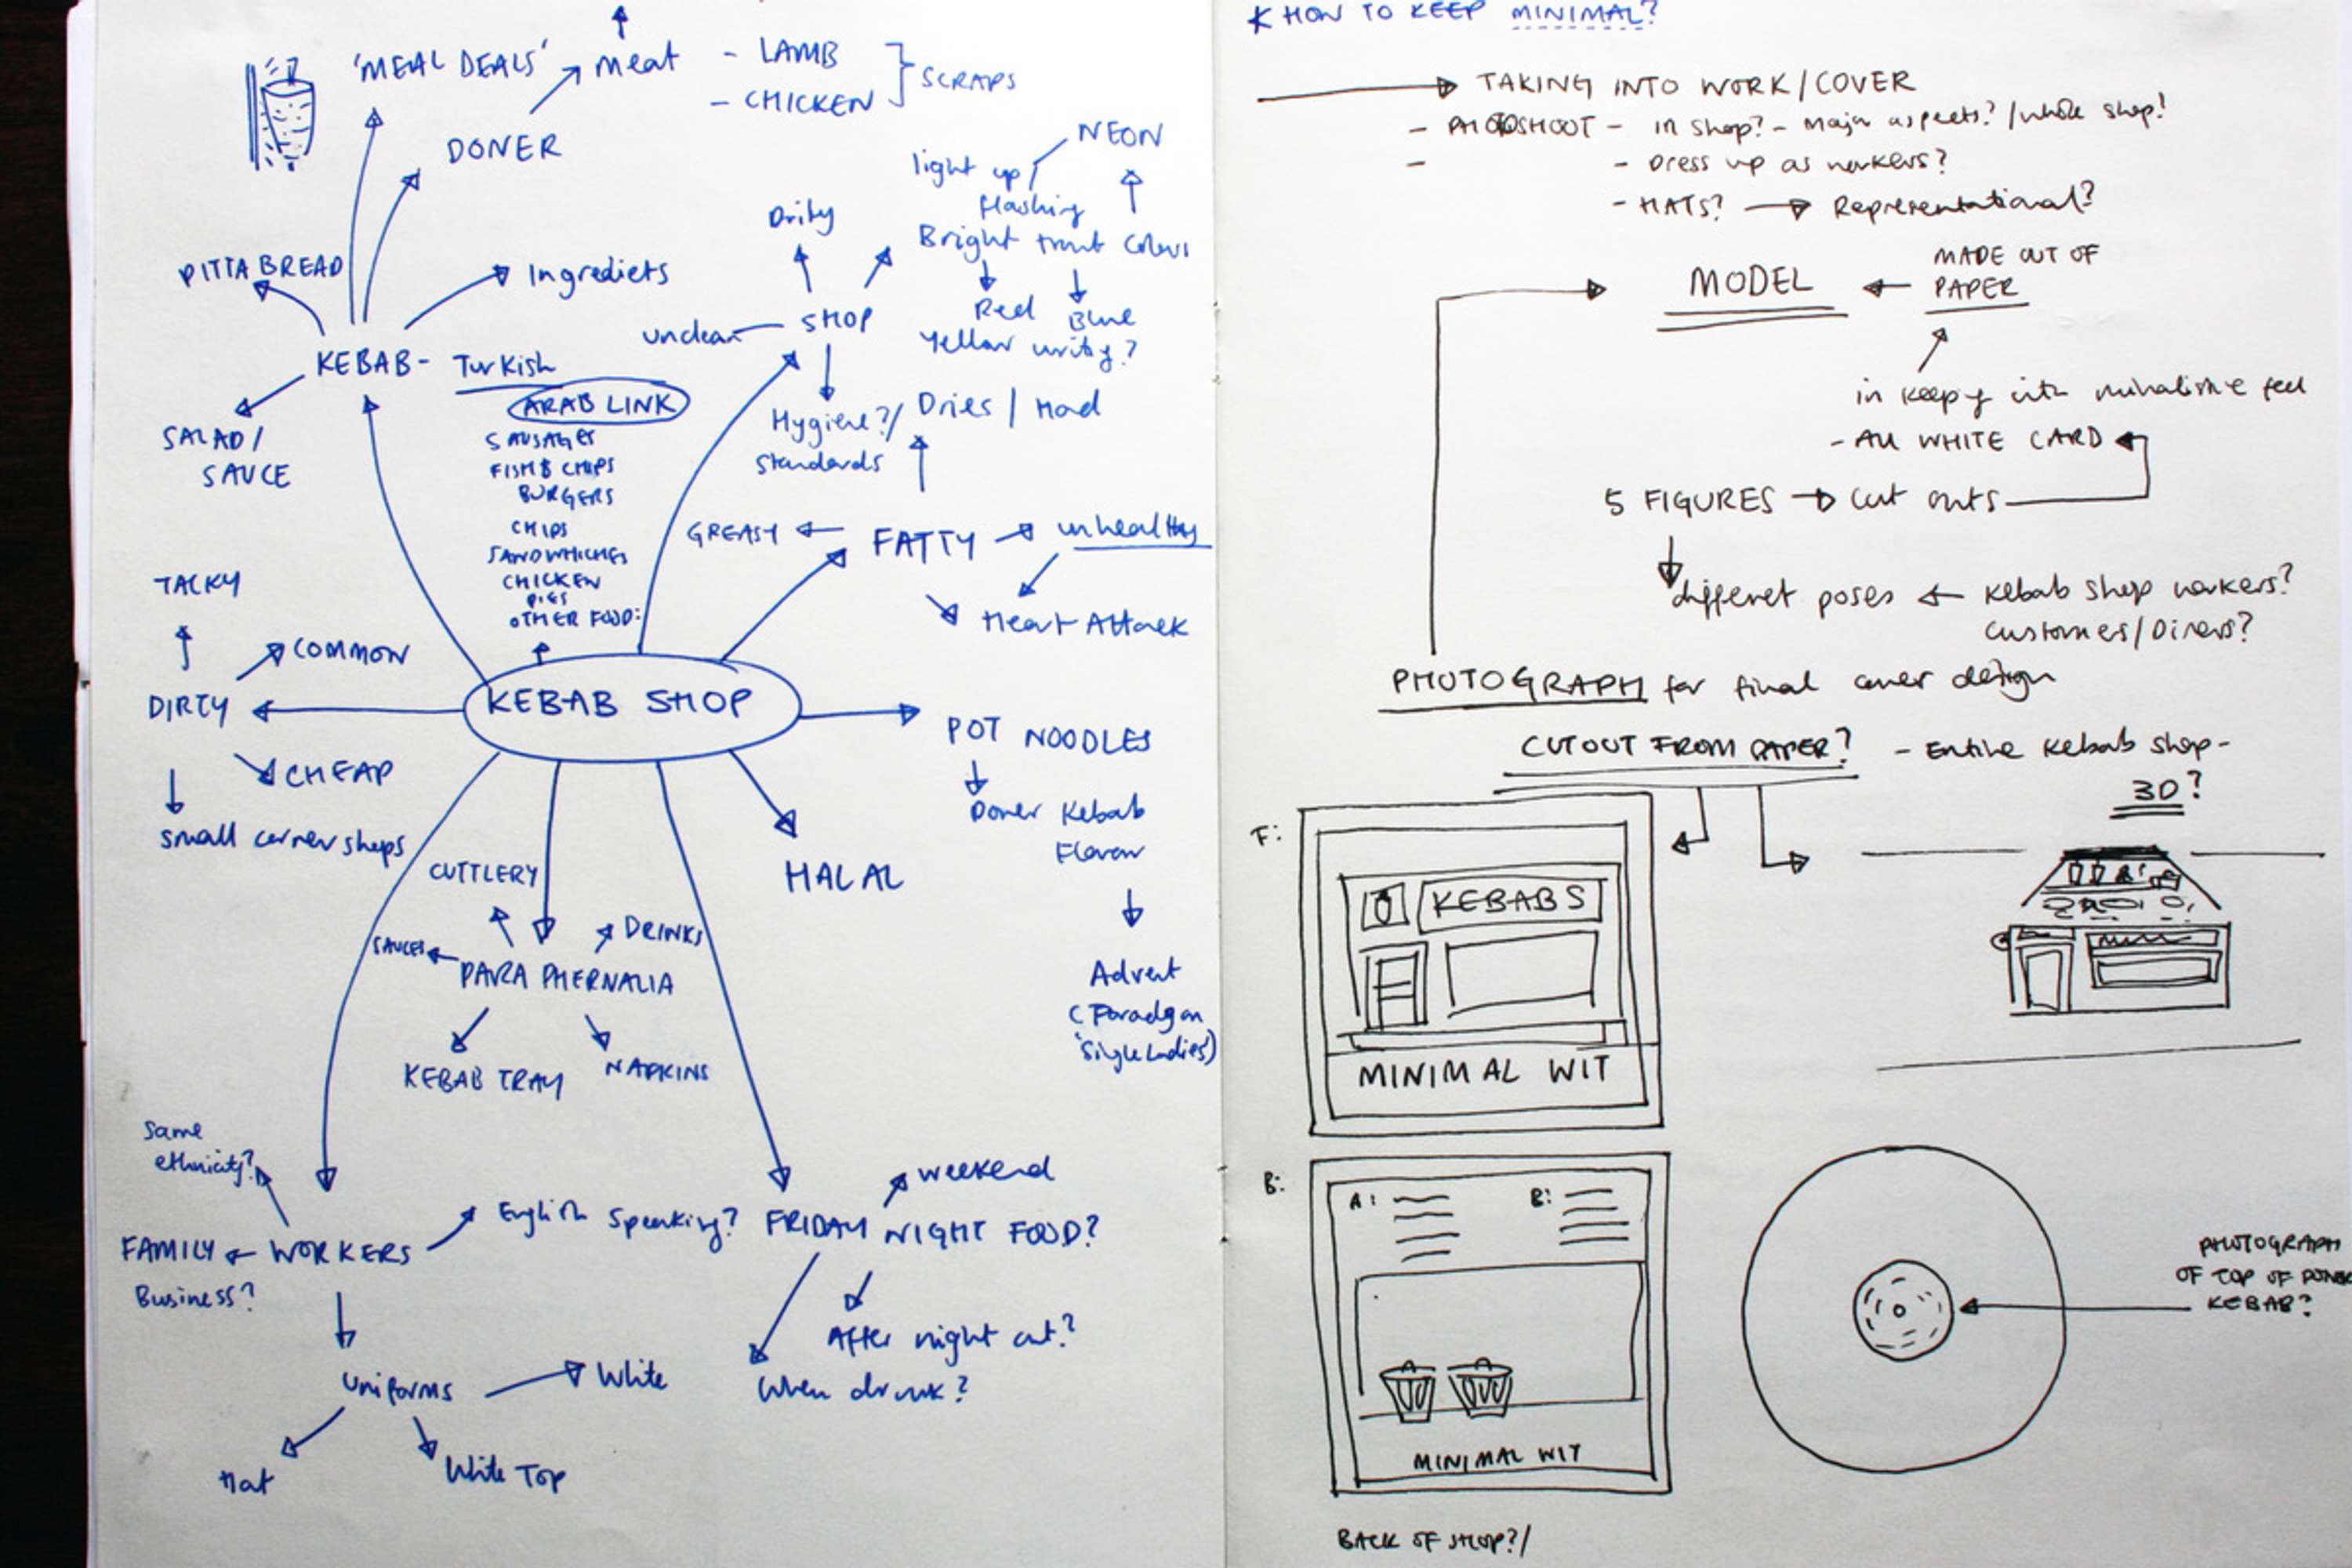 'MEAL DEALS'
meat
- LAMB
- CHICKEN
SCRAPS
DONER
PITTA BREAD
Ingrediets
KEBAB - Turkish
ARAB LINK
SALAD/
SAUCE
SAUSAGES
FISH & CHIPS
BURGERS
CHIPS
SANDWHICHES
CHICKEN
PIES
OTHER FOOD:
NEON
light up/
flashing
Bright front Colours
Red
Blue
Yellow
SHOP
unclean
Hygiene?/
Standards
Dries / Hard
GREASY
FATTY
unhealthy
Heart Attack
TACKY
COMMON
DIRTY
CHEAP
small corner shops
KEBAB SHOP
POT NOODLES
Doner Kebab
Flavour
Advert
HALAL
CUTTLERY
SAUCES
DRINKS
PARA PHERNALIA
KEBAB TRAY
NAPKINS
Same
ethnicity?
FAMILY
Business?
WORKERS
English Speaking?
Uniforms
White
Hat
White Top
weekend
FRIDAY NIGHT FOOD?
After night out?
When drunk?
* HOW TO KEEP MINIMAL?
TAKING INTO WORK/COVER
- PHOTOSHOOT - in shop? - Major aspects? /whole shop?
-
- Dress up as workers?
- HATS? Representational?
MODEL
MADE OUT OF
PAPER
in keepig with minalistic feel
- All WHITE CARD
5 FIGURES cut outs
differet poses
Kebab shop workers?
Customers/Diners?
PHOTOGRAPH for final cover design
CUTOUT FROM PAPER? - Entire Kebab shop -
3D?
F:
KEBABS
MINIMAL WIT
B:
A:
B:
MINIMAL WIT
BACK OF SHOP?/
PHOTOGRAPH
OF TOP OF DONER
KEBAB?